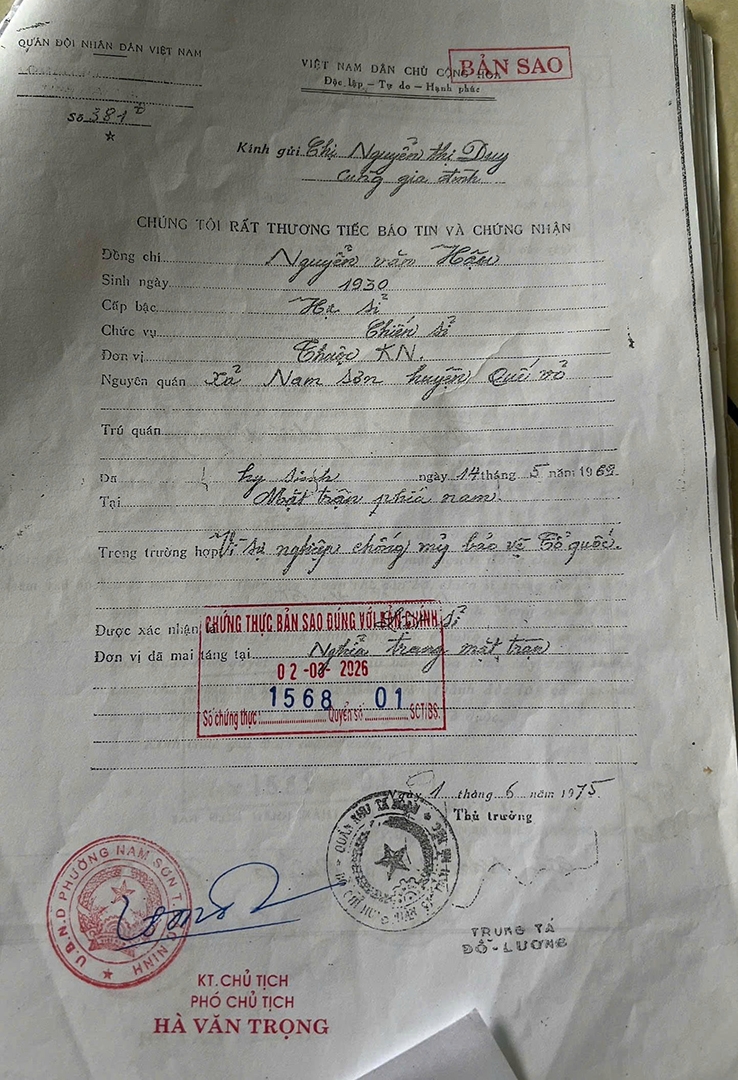 QUÂN ĐỘI NHÂN DÂN VIỆT NAM
Số 381
VIỆT NAM DÂN CHỦ CỘNG HÒA
BẢN SAO
Độc lập – Tự do – Hạnh phúc
Kính gửi Chị Nguyễn thị Duy
cùng gia đình
CHÚNG TÔI RẤT THƯƠNG TIẾC BÁO TIN VÀ CHỨNG NHẬN
Đồng chí Nguyễn văn Hậu
Sinh ngày 1930
Cấp bậc Hạ sĩ
Chức vụ Chiến sĩ
Đơn vị Thuộc KN.
Nguyên quán xã Nam Sơn huyện Quế võ
Trú quán
Đã hy sinh ngày 14 tháng 5 năm 1969
Tại Mặt trận phía nam.
Trong trường hợp Vì sự nghiệp chống mỹ bảo vệ Tổ quốc.
Được xác nhận là sĩ
CHỨNG THỰC BẢN SAO ĐÚNG VỚI BẢN CHÍNH
Đơn vị đã mai táng tại Nghĩa trang mặt trận
02-03-2026
1568 01
Số chứng thực: Quyển số SCT/BS
Ngày 1 tháng 6 năm 1975
Thủ trưởng
U.B.N.D PHƯỜNG NAM SƠN T. BẮC NINH
TRUNG TÁ
ĐỖ-LƯƠNG
KT.CHỦ TỊCH
PHÓ CHỦ TỊCH
HÀ VĂN TRỌNG